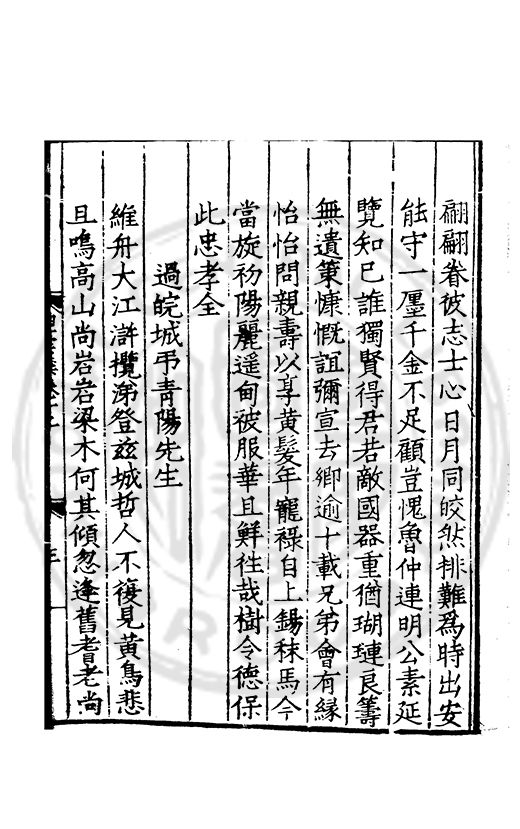 翩翩眷彼志士心日月同皎然排難爲時出安
能守一廛千金不足顧豈愧魯仲連明公素延
覽知已誰獨賢得君若敵國器重猶瑚璉良籌
無遺策慷慨誼彌宣去鄉逾十載兄弟會有緣
怡怡問親壽以享黃髮年寵祿自上錫秣馬今
當旋初陽麗遥甸被服華且鮮徃哉樹令德保
此忠孝全
過皖城弔青陽先生
維舟大江滸攬涕登兹城哲人不複見黃鳥悲
且鳴高山尚岩岩梁木何其傾忽逢舊耆老尚